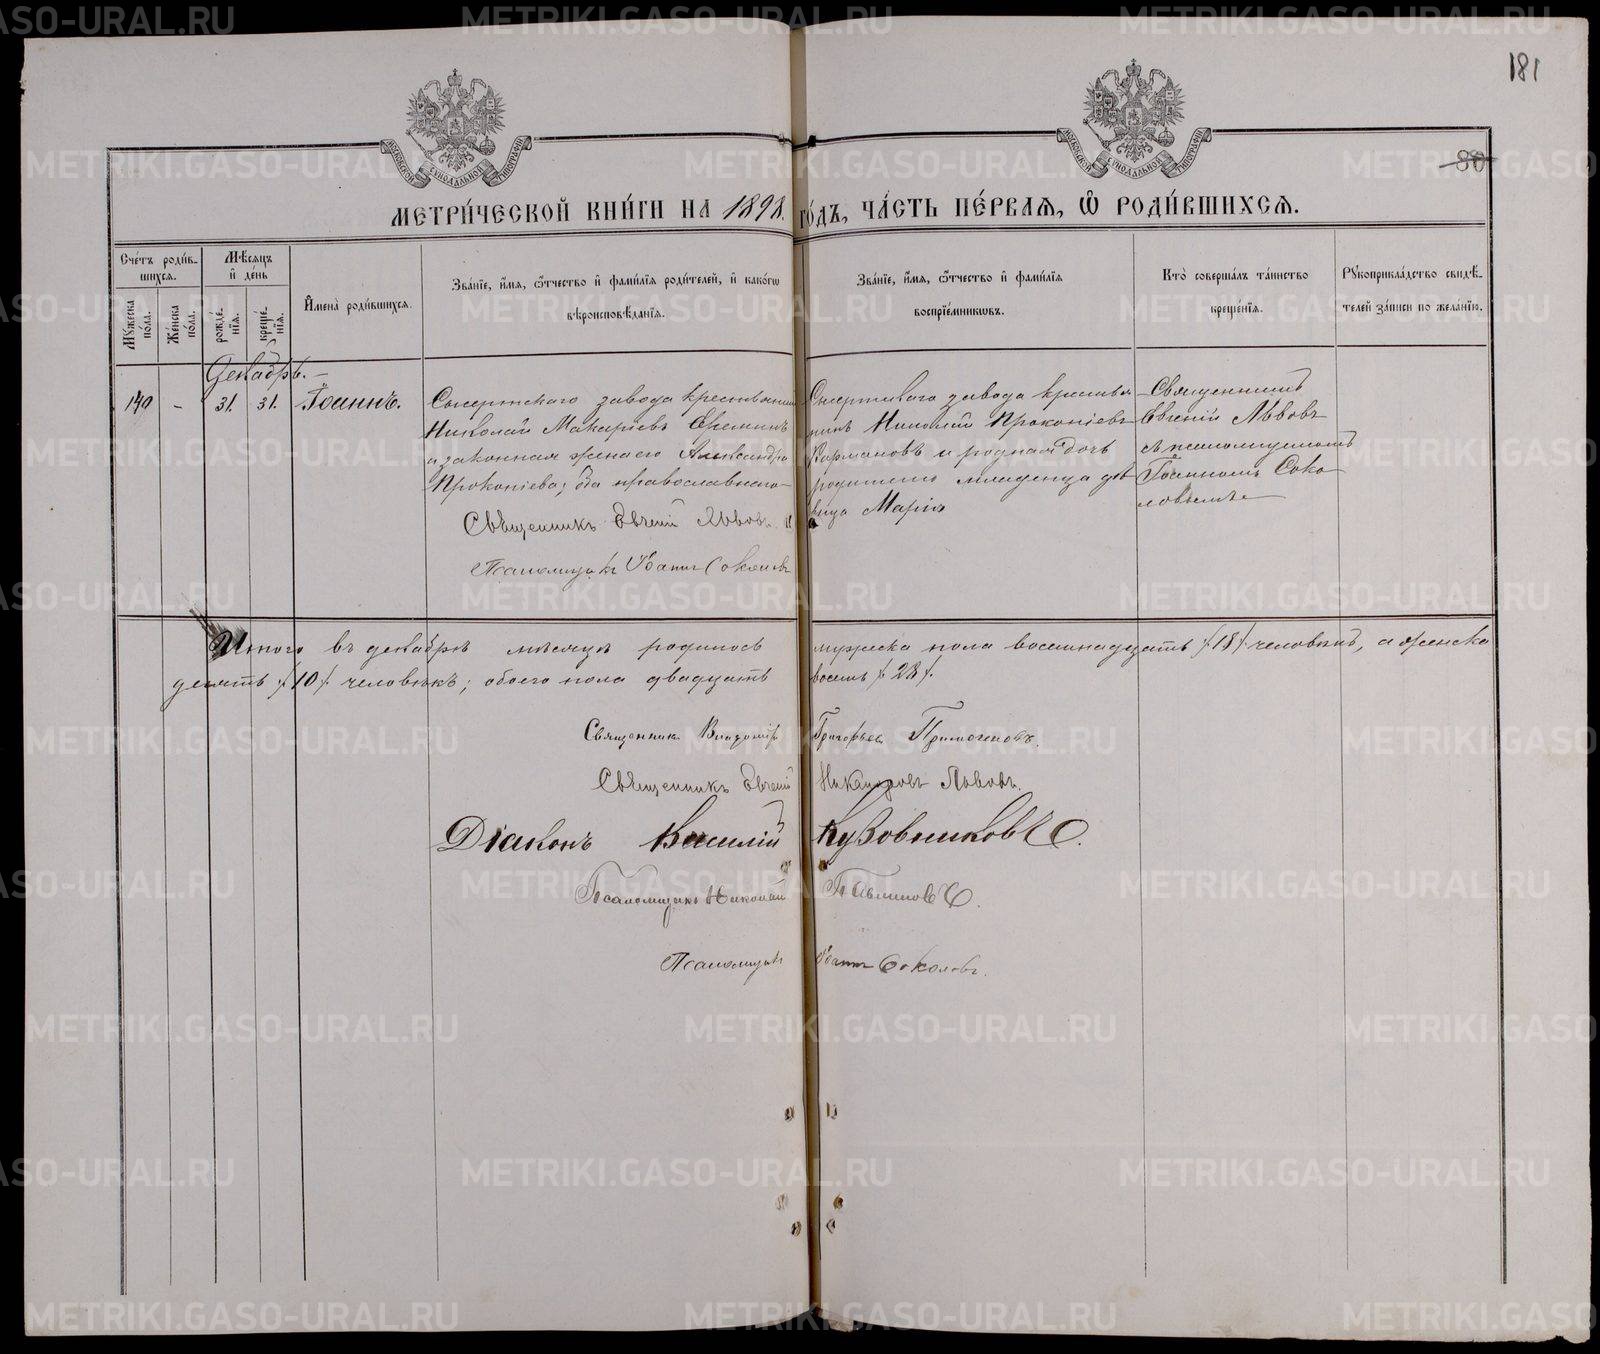 181
80
МОСКОВСКОЙ СѴНОДАЛЬНОЙ ТИПОГРАФІИ
МОСКОВСКОЙ СѴНОДАЛЬНОЙ ТИПОГРАФІИ
МЕТРИ́ЧЕСКОЙ КНИ́ГИ НА 1898. ГО́ДЪ, ЧА́СТЬ ПЕ́РВАЯ, Ѡ РОДИ́ВШИХСЯ.
Сче́тъ роди́вшихся.
Му́жеска по́ла.
Же́нска по́ла.
Мѣ́сяцъ и де́нь
рожде́нїя.
креще́нїя.
И́мена роди́вшихся.
Зва́нїе, и́мя, ѻ́тчество и фами́лїя роди́телей, и како́гѡ
вѣроисповѣ́данїя.
Зва́нїе, и́мя, ѻ́тчество и фами́лїя
воспрїе́мникѡвъ.
Кто̀ соверша́лъ та́инство
креще́нїя.
Рукоприкла́дство свидѣ́-
телей за́писи по жела́нїю.
Декабрь.
140 - 31. 31. Іоаннъ.
Сысертскаго завода крестьянинъ
Николай Макаріевъ
и законная жена его Александра
Прокопіева; оба православнаго
Священникъ Евгеній Львовъ
Псаломщикъ Іоаннъ Соколовъ
Сысертскаго завода крестья
нинъ Николай Прокопіевъ
и родная дочь
младенца дѣ
вица Марія
Священникъ
Евгеній Львовъ
съ псаломщикомъ
Іоанномъ Соко
ловымъ
Итого въ декабрѣ мѣсяцѣ родилось мужеска пола восемнадцать /18/ человѣкъ, а женска
десять /10/ человѣкъ; обоего пола двадцать восемь /28/.
Священникъ Владиміръ Григорьевъ
Священникъ Евгеній Никаноровъ Львовъ.
Діаконъ Василій Кузовниковъ.
Псаломщикъ Николай
Псаломщикъ Іоаннъ Соколовъ.
METRIKI.GASO-URAL.RU